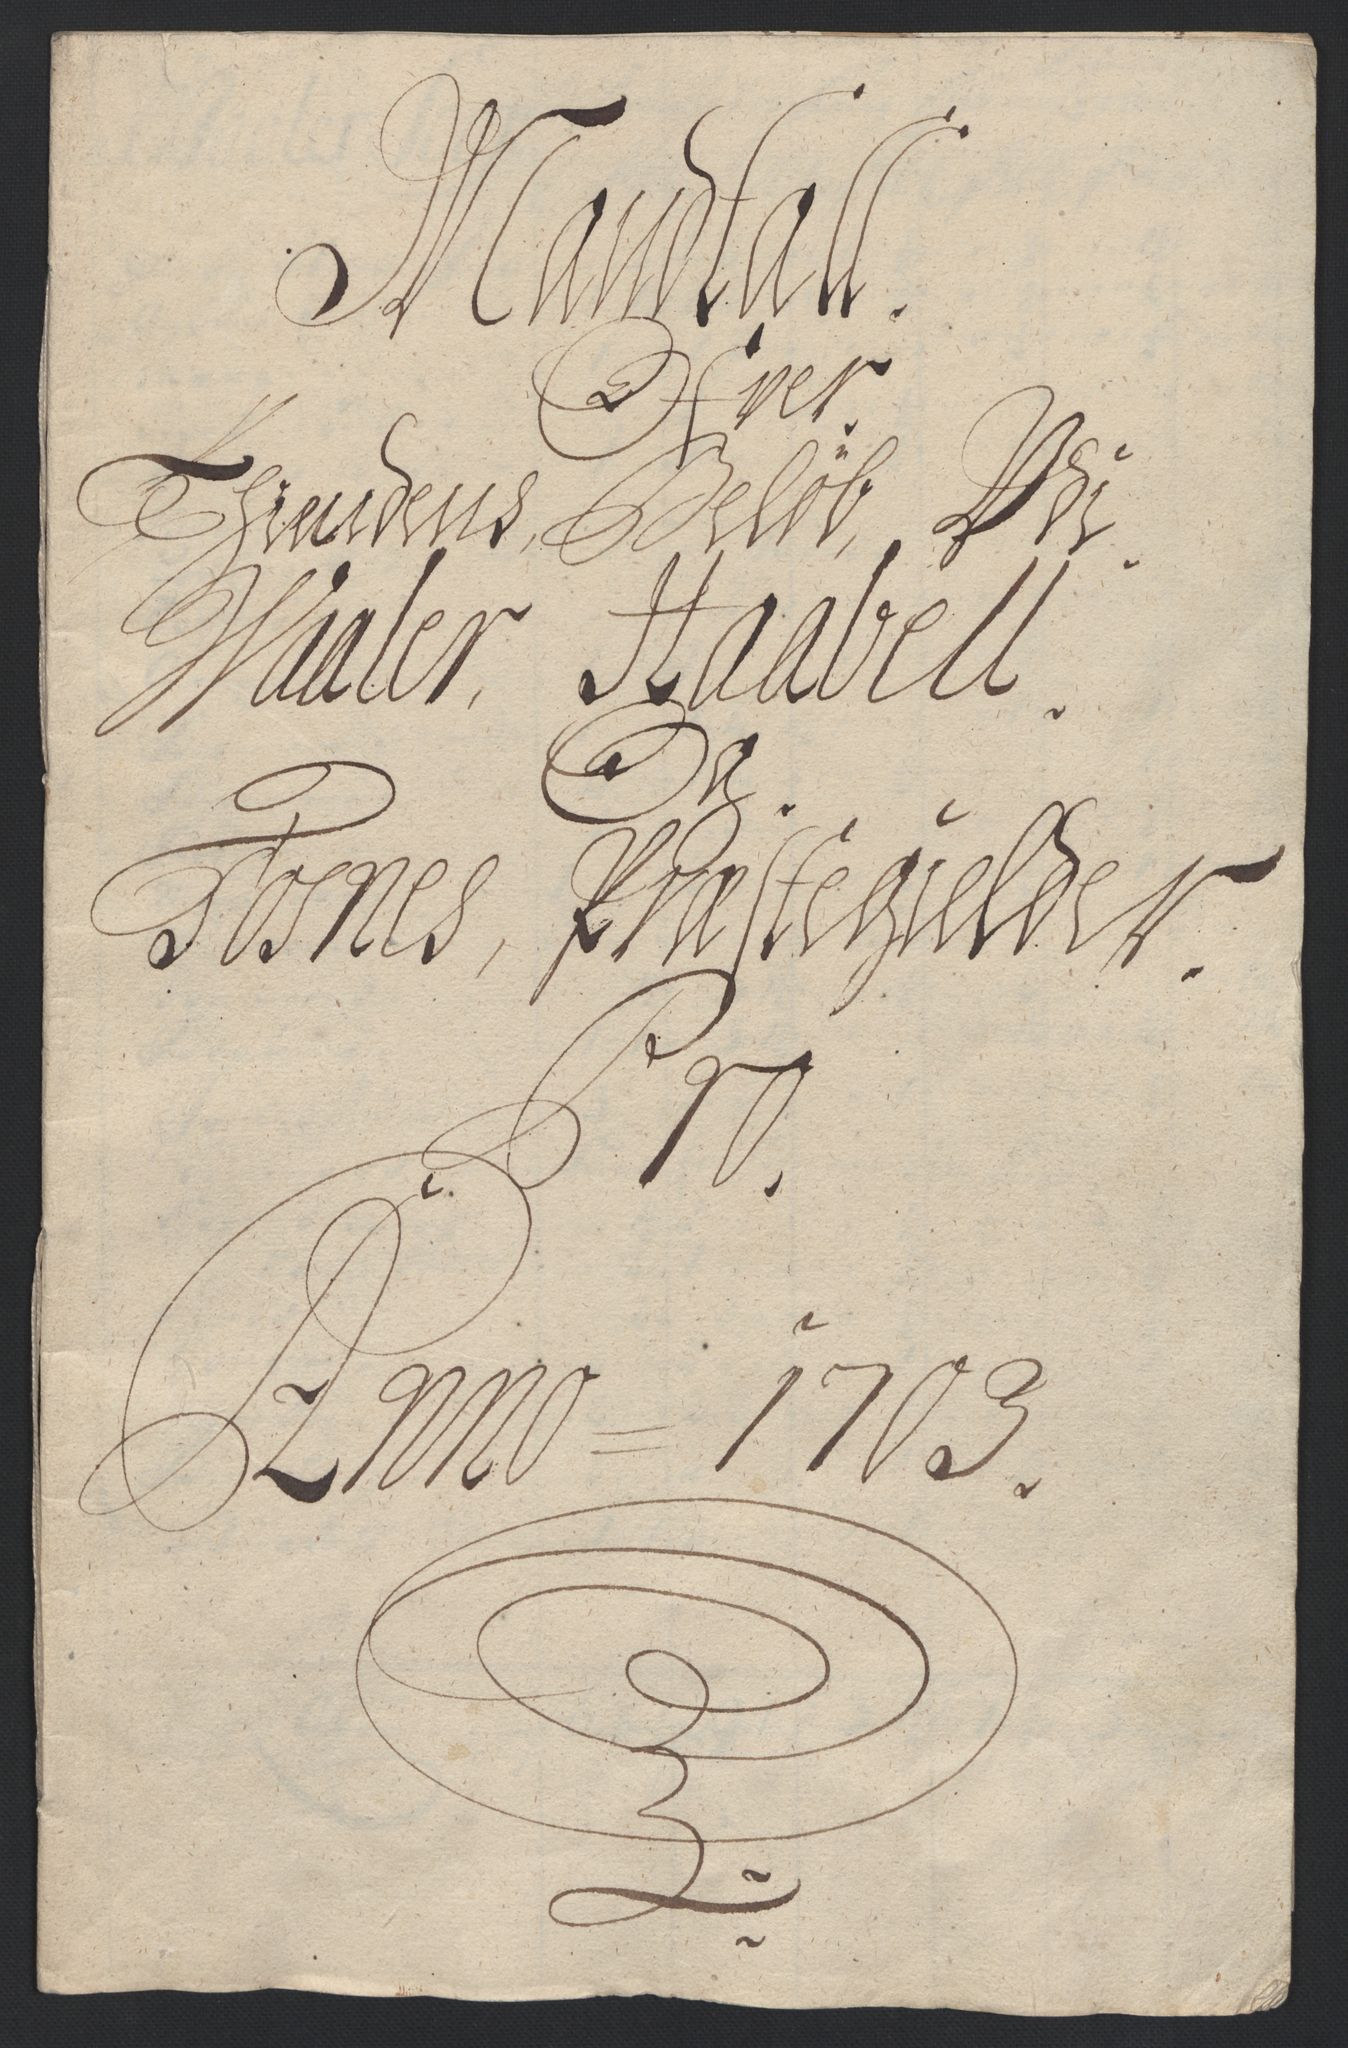 Mandtall.
Ofver
Thiendens, Beløb, Udi
Waaler, Haabell.
Og.
Fosnes, Præstegielder.
Pro.
Anno = 1703.